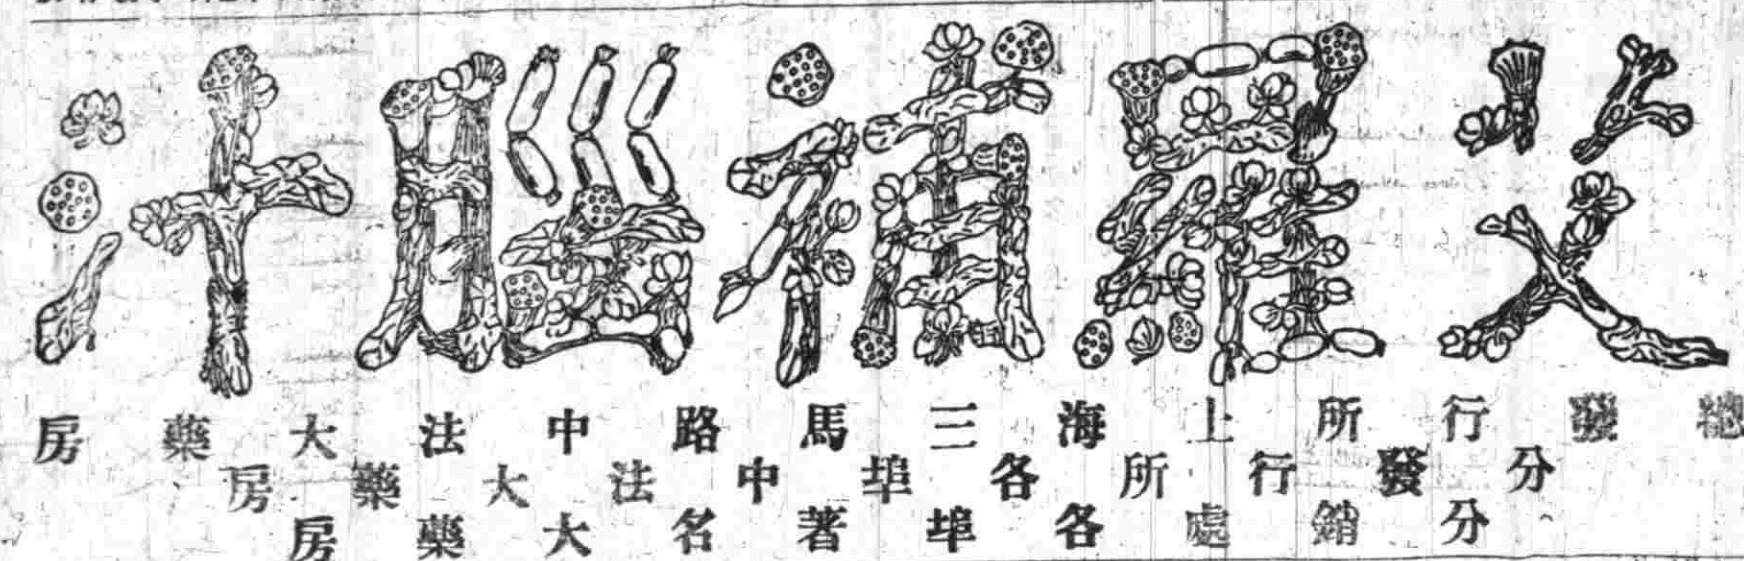 艾羅補腦汁
總發行所上海三馬路中法大藥房
分發行所各埠中法大藥房
分銷處各埠著名大藥房